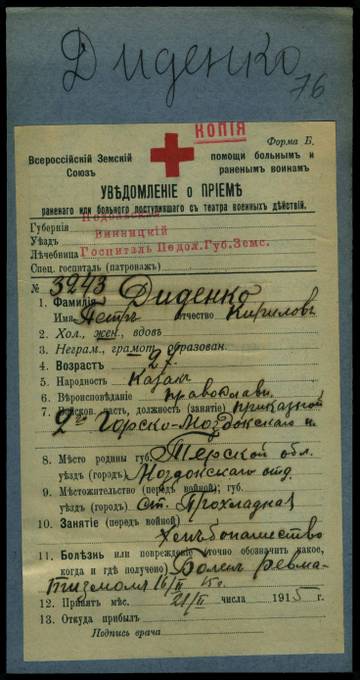 Диденко
76
КОПІЯ
Форма Б.
Всероссійскій Земскій Союзъ
помощи больнымъ и раненымъ воинамъ
УВѢДОМЛЕНІЕ о ПРІЕМѢ
раненаго или больного поступившаго съ театра военныхъ дѣйствій.
Губернія Подольская
Уѣздъ Винницкій
Лѣчебница Госпиталь Подол.Губ.Земс.
Спец. госпиталь (патронаж)
№ 3243
1. Фамилія Диденко
Имя Петръ отчество Кириловъ
2. Хол., жен., вдовъ
3. Неграм., грамот., образован.
4. Возрастъ – 27.
5. Народность Казакъ
6. Вѣроисповѣданіе православн.
7. Войсков. часть, должность (занятіе) приказной
2го Горско-Моздокскаго п.
8. Мѣсто родины губ. Терской обл.
уѣздъ (городъ) Моздокскаго отд.
9. Мѣстожительство (передъ войной); губ.
уѣздъ (городъ) ст. Прохладная
10. Занятіе (передъ войной)
хлѣбопашество
11. Болѣзнь или поврежденіе (точно обозначить какое,
когда и гдѣ получено) Боленъ ревма-
тизмомъ 16/II 15 г.
12. Принятъ мѣс. 21/II числа 1915 г.
13. Откуда прибылъ
Подпись врача